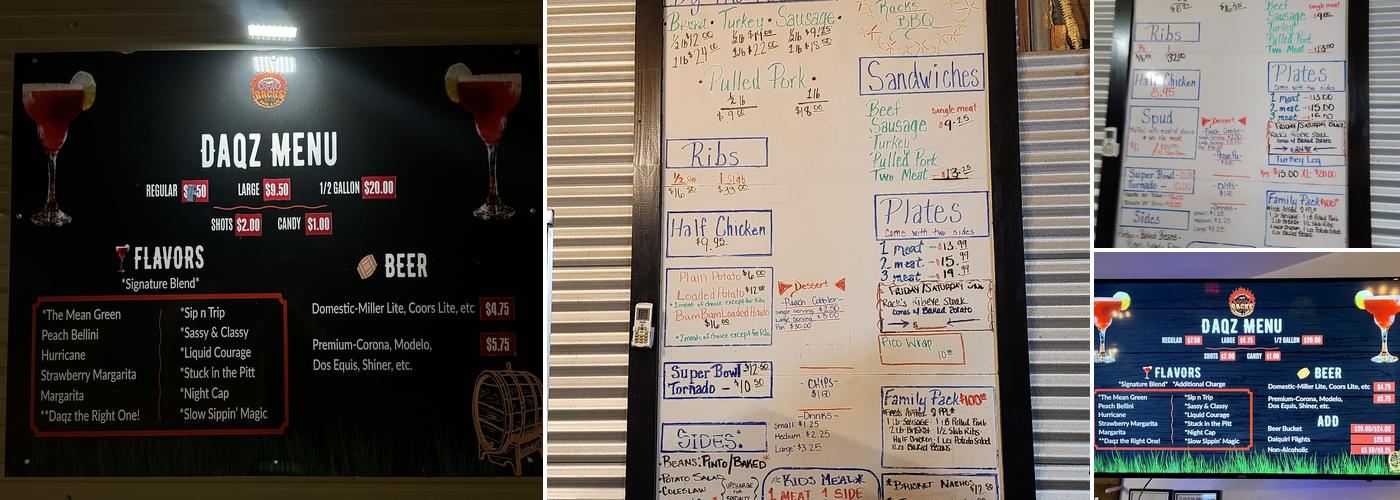 RACKS
DAQZ MENU
REGULAR LARGE $9.50 1/2 GALLON $20.00
SHOTS $2.00 CANDY $1.00
FLAVORS
*Signature Blend*
*The Mean Green
Peach Bellini
Hurricane
Strawberry Margarita
Margarita
**Daqz the Right One!
*Sip n Trip
*Sassy & Classy
*Liquid Courage
*Stuck in the Pitt
*Night Cap
*Slow Sippin' Magic
BEER
Domestic-Miller Lite, Coors Lite, etc $4.75
Premium-Corona, Modelo, $5.75
Dos Equis, Shiner, etc.
Brisket • Turkey • Sausage •
1/2 lb $12.00
1 lb $24
1 lb $22.00
• Pulled Pork •
1/2 lb 1 lb
$9.00 $18.00
Ribs
1/2 Slab 1 Slab
$16.50 $33.00
Half Chicken
$9.95
Plain Potato $6.00
Loaded Potato $12.00
*2 meats of choice except for Ribs
Bam Bam Loaded Potato
$16.00
*2 meats of choice except for Ribs
Super Bowl $12.50
Tornado - $10.50
SIDES:
• BEANS: PINTO/BAKED
• POTATO SALAD
• COLESLAW
UPCHARGE FOR SPECIALTY
Dessert
-Peach Cobbler-
Single Serving $2.50
Large Serving $5.00
Pan $30.00
-CHIPS-
$1.60
-Drinks-
Small: $1.25
Medium: $2.25
Large: $3.25
KIDS MEAL*
1 MEAT 1 SIDE
Racks
BBQ
Sandwiches
Beef
Sausage
Turkey
Pulled Pork
Two Meat - $13.25
Single meat
$9.25
Plates
Come with two sides
1 meat - $13.99
2 meat - $15.99
3 meat - $19.99
FRIDAY/SATURDAY
Rack's Ribeye Steak
comes w/ Baked Potato
Pico Wrap
10.00
Family Pack $100.00
*Feeds Around 8 PPL*
1 lb Sausage • 1 lb Pulled Pork
2 lb Brisket • 1/2 Slab Ribs
Half Chicken • 1 LG Potato Salad
1 LG Baked Beans
*BRISKET NACHOS $12.50
Ribs
Half Chicken
8.95
Spud
Super Bowl
Tornado - 10.00
Sides
Pintos - Baked Beans -
Dessert
-Peach Cobbler-
-CHIPS-
$1.60
-Drinks-
Small: $1.25
Medium: $2.25
Large: $3.25
Beef
Sausage
Turkey
Pulled Pork
Two Meat - $13.00
Single meat
$9.00
Plates
Come with two sides
1 meat - $13.00
2 meat - $15.00
3 meat - $19.00
FRIDAY/SATURDAY ONLY
Rack's Ribeye Steak
comes w/ Baked Potato
Turkey Leg
$15.00 XL: $20.00
Family Pack $100
1 lb Sausage • 1 lb Pulled Pork
DAQZ MENU
REGULAR $7.50 LARGE $9.25 1/2 GALLON $20.00
SHOTS $2.00 CANDY $1.00
FLAVORS
*Signature Blend* *Additional Charge
*The Mean Green
Peach Bellini
Hurricane
Strawberry Margarita
Margarita
**Daqz the Right One!
*Sip n Trip
*Sassy & Classy
*Liquid Courage
*Stuck in the Pitt
*Night Cap
*Slow Sippin' Magic
BEER
Domestic-Miller Lite, Coors Lite, etc $4.75
Premium-Corona, Modelo, $5.75
Dos Equis, Shiner, etc.
ADD
Beer Bucket $20.00/$24.00
Daiquiri Flights $20.00
Non-Alcoholic